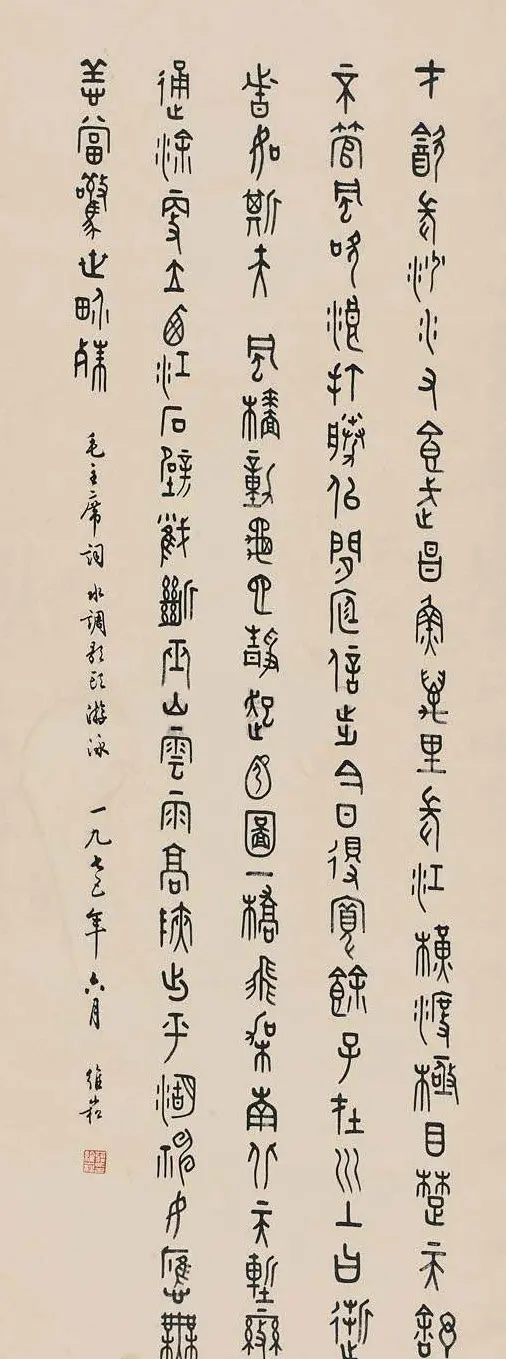 才飲長沙水又食武昌魚萬里長江橫渡極目楚天舒
不管風吹浪打勝似閒庭信步今日得寬餘子在川上曰逝
者如斯夫 風檣動龜蛇靜起宏圖一橋飛架南北天塹變
通途更立西江石壁截斷巫山雲雨高峽出平湖神女應無
恙當驚世界殊
毛主席詞水調歌頭游泳 一九七年六月 維崧